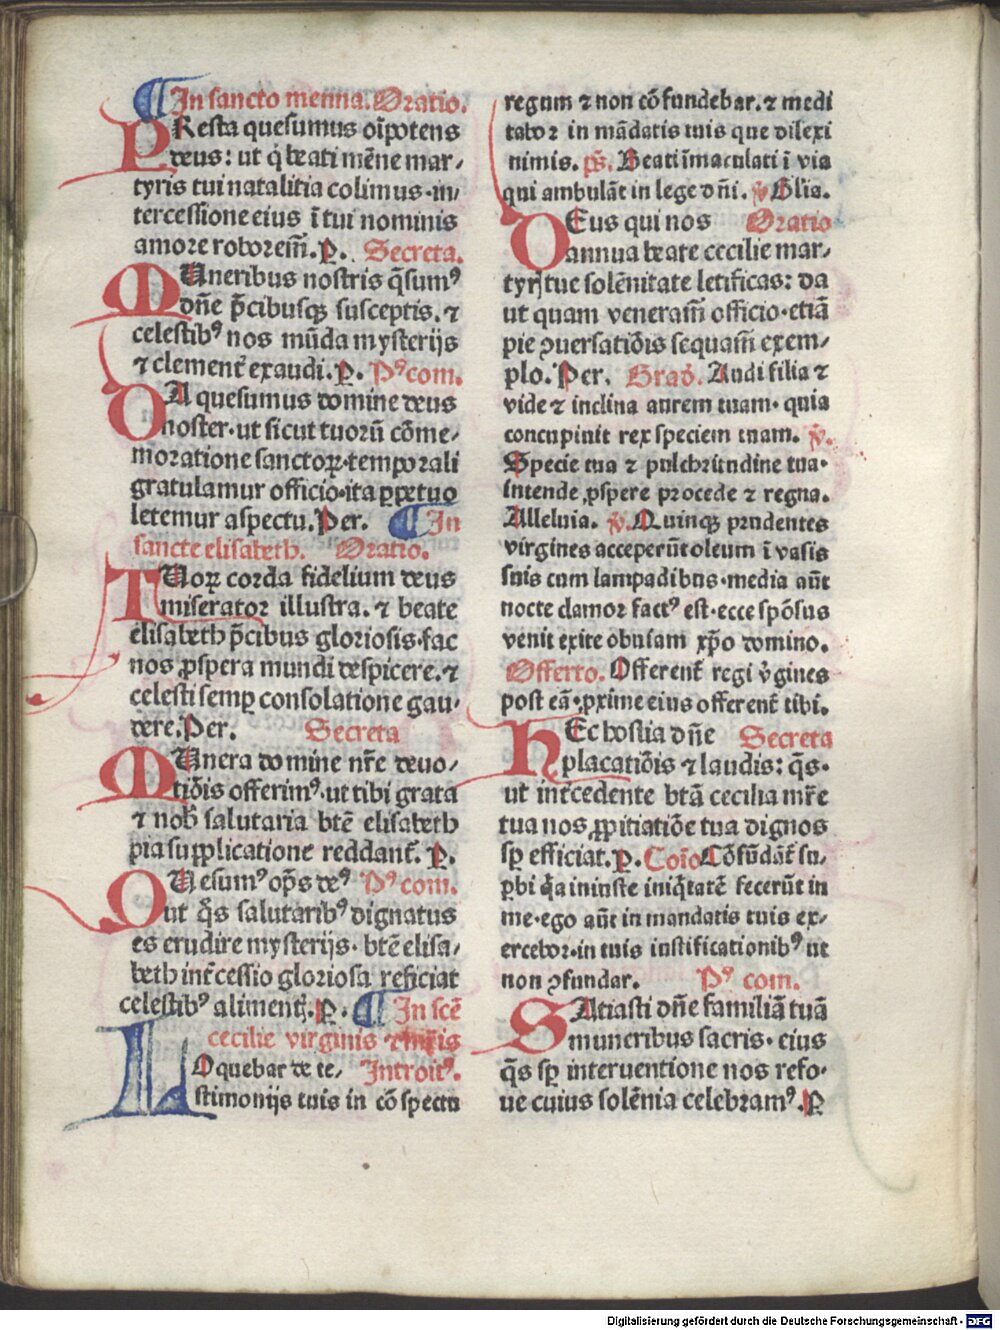 In sancto menna. Oratio.
PResta quesumus oīpotens
deus: ut q̇ beati mēne mar⸗
tyris tui natalitia colimus·in⸗
tercessione eius ī tui nominis
amore roboremᷓ. P. Secreta.
MUneribus nostris q̄sumꝰ
dn̄e p̄cibusqꝫ susceptis. ⁊
celestibꝰ nos mūda mysterijs
⁊ clement̄ exaudi. P. Pꝰcom.
DA quesumus domine deus
noster·ut sicut tuorū cōme⸗
moratione sanctoꝝ·temporali
gratulamur officio·ita ꝑpetuo
letemur aspectu. Per. In
sancte elisabeth. Oratio.
TUoꝝ corda fidelium deus
miserator illustra. ⁊ beate
elisabeth p̄cibus gloriosis·fac
nos ꝓspera mundi despicere. ⁊
celesti semꝑ consolatione gau⸗
dere. Per. Secreta
MUnera domine nr̄e deuo⸗
tiōis offerimꝰ·ut tibi grata
⁊ nob̄ salutaria btē elisabeth
pia supplicatione reddant̄. P.
QUesumꝰ op̄s deꝰ Pꝰcom.
ut q̄s salutaribꝰ dignatus
es erudire mysterijs· btē elisa⸗
beth int̄cessio gloriosa reficiat
celestibꝰ aliment̄. P. In scē
cecilie virginis ⁊ mr̄is
LOquebar de te⸗ Introitꝰ.
stimonijs tuis in cōspectu
regum ⁊ non cōfundebar. ⁊ medi
tabor in mādatis tuis que dilexi
nimis. p̄s. Beati īmaculati ī via
qui ambulāt in lege dn̄i. ℣ Glia.
DEus qui nos Oratio
annua beate cecilie mar⸗
tyrꝭ tue solēnitate letificas: da
ut quam veneramᷓ officio·etiā
pie ꝯuersatiōis sequamᷓ exem⸗
plo. Per. Grad̄. Audi filia ⁊
vide ⁊ inclina aurem tuam· quia
concupiuit rex speciem tuam. ℣.
Specie tua ⁊ pulchritudine tua·
intende ꝓspere procede ⁊ regna.
Alleluia. ℣. Quinqꝫ prudentes
virgines acceperūt oleum ī vasis
suis cum lampadibus·media aūt
nocte clamor factꝰ est·ecce spōsus
venit exite obuiam xp̄o domino.
Offerto. Offerent̄ regi v̇gines
post eā·ꝓxime eius offerent̄ tibi.
HEc hostia dn̄e Secreta
placatiōis ⁊ laudis: q̄s·
ut int̄cedente btā cecilia mr̄e
tua nos ꝓpitiatiōe tua dignos
sp̄ efficiat. P. Coīo Cōfūdāt̄ su⸗
ꝑbi q̇a iniuste iniq̇tatē fecerūt in
me·ego aūt in mandatis tuis ex⸗
ercebor·in tuis iustificationibꝰ ut
non ꝯfundar. Pꝰ com.
SAtiasti dn̄e familiā tuā
muneribus sacris· eius
q̄s sp̄ interuentione nos refo·
ue cuius solēnia celebramꝰ. P
Digitalisierung gefördert durch die Deutsche Forschungsgemeinschaft - DFG